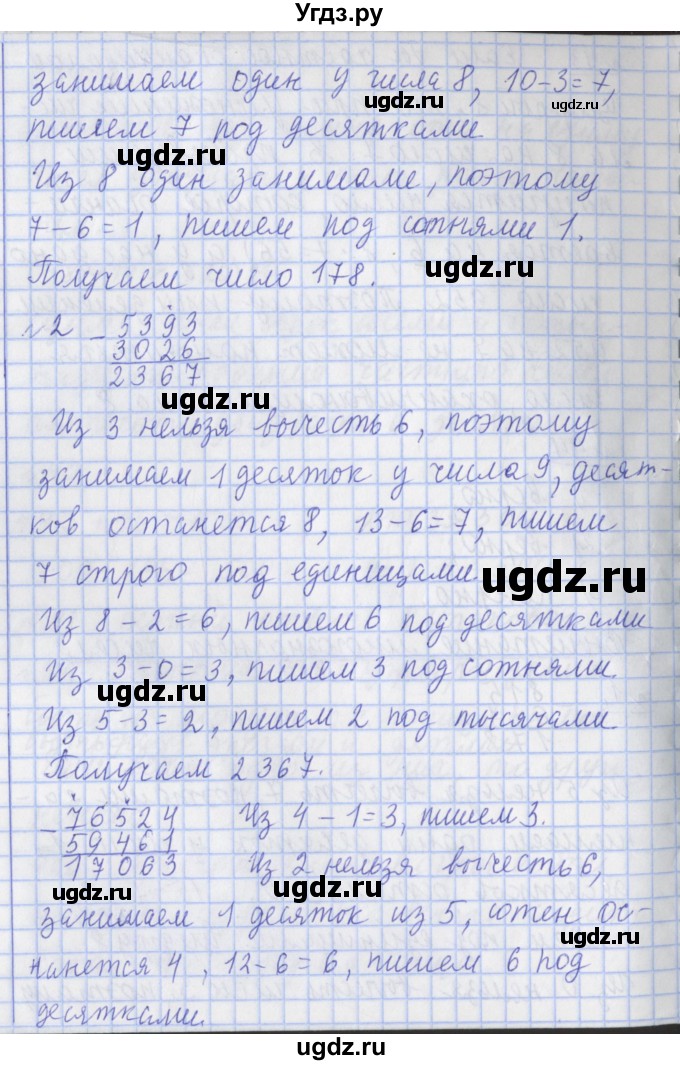 Угдз.ру
занимаем один у числа 8, 10-3=7,
ugdz.ru
пишем 7 под десятками
ugdz.ru
Из 8 один занимали, поэтому
7-6=1, пишем под сотнями 1.
Получаем число 178.
ugdz.ru
№2 - 5393
3026
2367
ugdz.ru
Из 3 нельзя вычесть 6, поэтому
занимаем 1 десяток у числа 9, десят-
ков останется 8, 13-6=7, пишем
7 строго под единицами.
ugdz.ru
Из 8-2=6, пишем 6 под десятками
Из 3-0=3, пишем 3 под сотнями.
ugdz.ru
Из 5-3=2, пишем 2 под тысячами.
Получаем 2367.
- 76524 Из 4-1=3, пишем 3.
59461
17063 Из 2 нельзя вычесть 6,
ugdz.ru
занимаем 1 десяток из 5, сотен ос-
ugdz.ru
танется 4, 12-6=6, пишем 6 под
десятками.
ugdz.ru